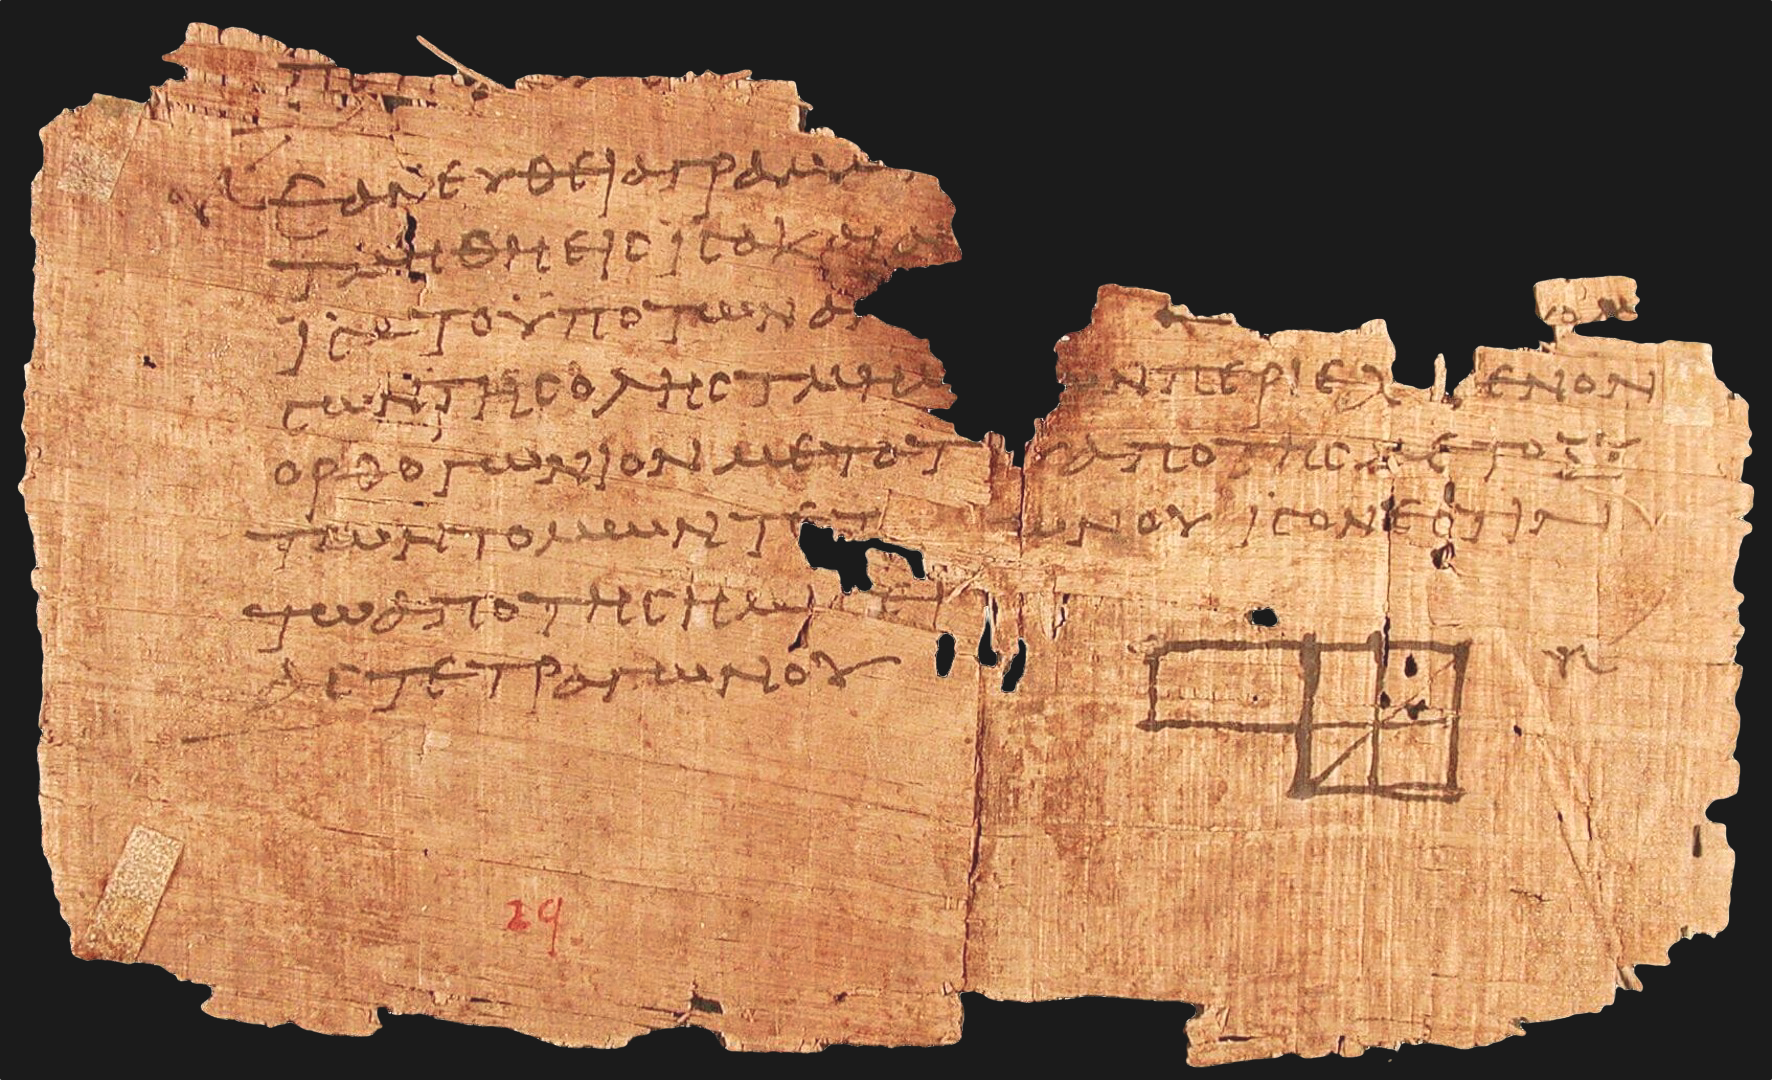 ΕΑΝΕΥΘΕΙΑΓΡΑΜΜ
ΤΜΗΘΗΕΙϹΙϹΑΚΑΙΑ
ΙϹΑΤΟΥΠΟΤΩΝΑΝ
ϹΩΝΤΗϹΟΛΗϹΤΜΗΜ ΩΝΠΕΡΙΕΧ ΜΕΝΟΝ
ΟΡΘΟΓΩΝΙΟΝΜΕΤΟΤ ΑΠΟΤΗϹΜΕΤΟΞΥ
ΤΩΝΤΟΜΩΝΤΕΤ ΩΝΟΥΙϹΟΝΕϹΤΙΝ
ΤΩΑΠΟΤΗϹΗΜΙϹΕΙ
ΑϹΤΕΤΡΑΓΩΝΟΥ
29